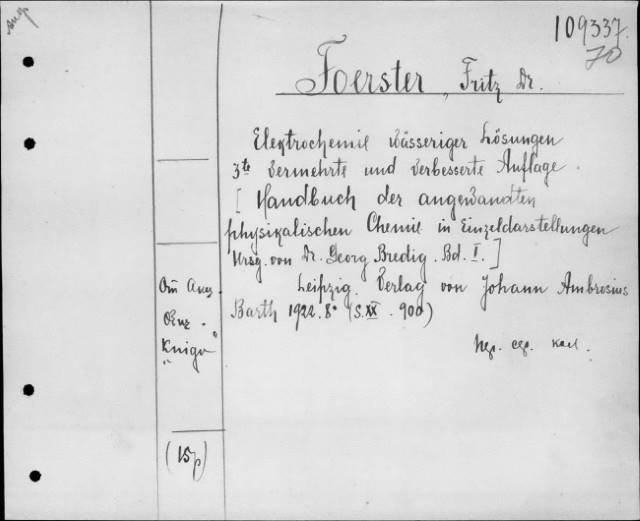 109337.
70
Foerster, Fritz Dr.
Elektrochemie wässeriger Lösungen
3te vermehrte und verbesserte Auflage.
[Handbuch der angewandten
physikalischen Chemie in Einzeldarstellungen
Hrsg. von Dr. Georg Bredig. Bd. I.]
Leipzig. Verlag von Johann Ambrosius
Barth 1922. 8° (S. XX - 900)
"Kniga"
(15 p)